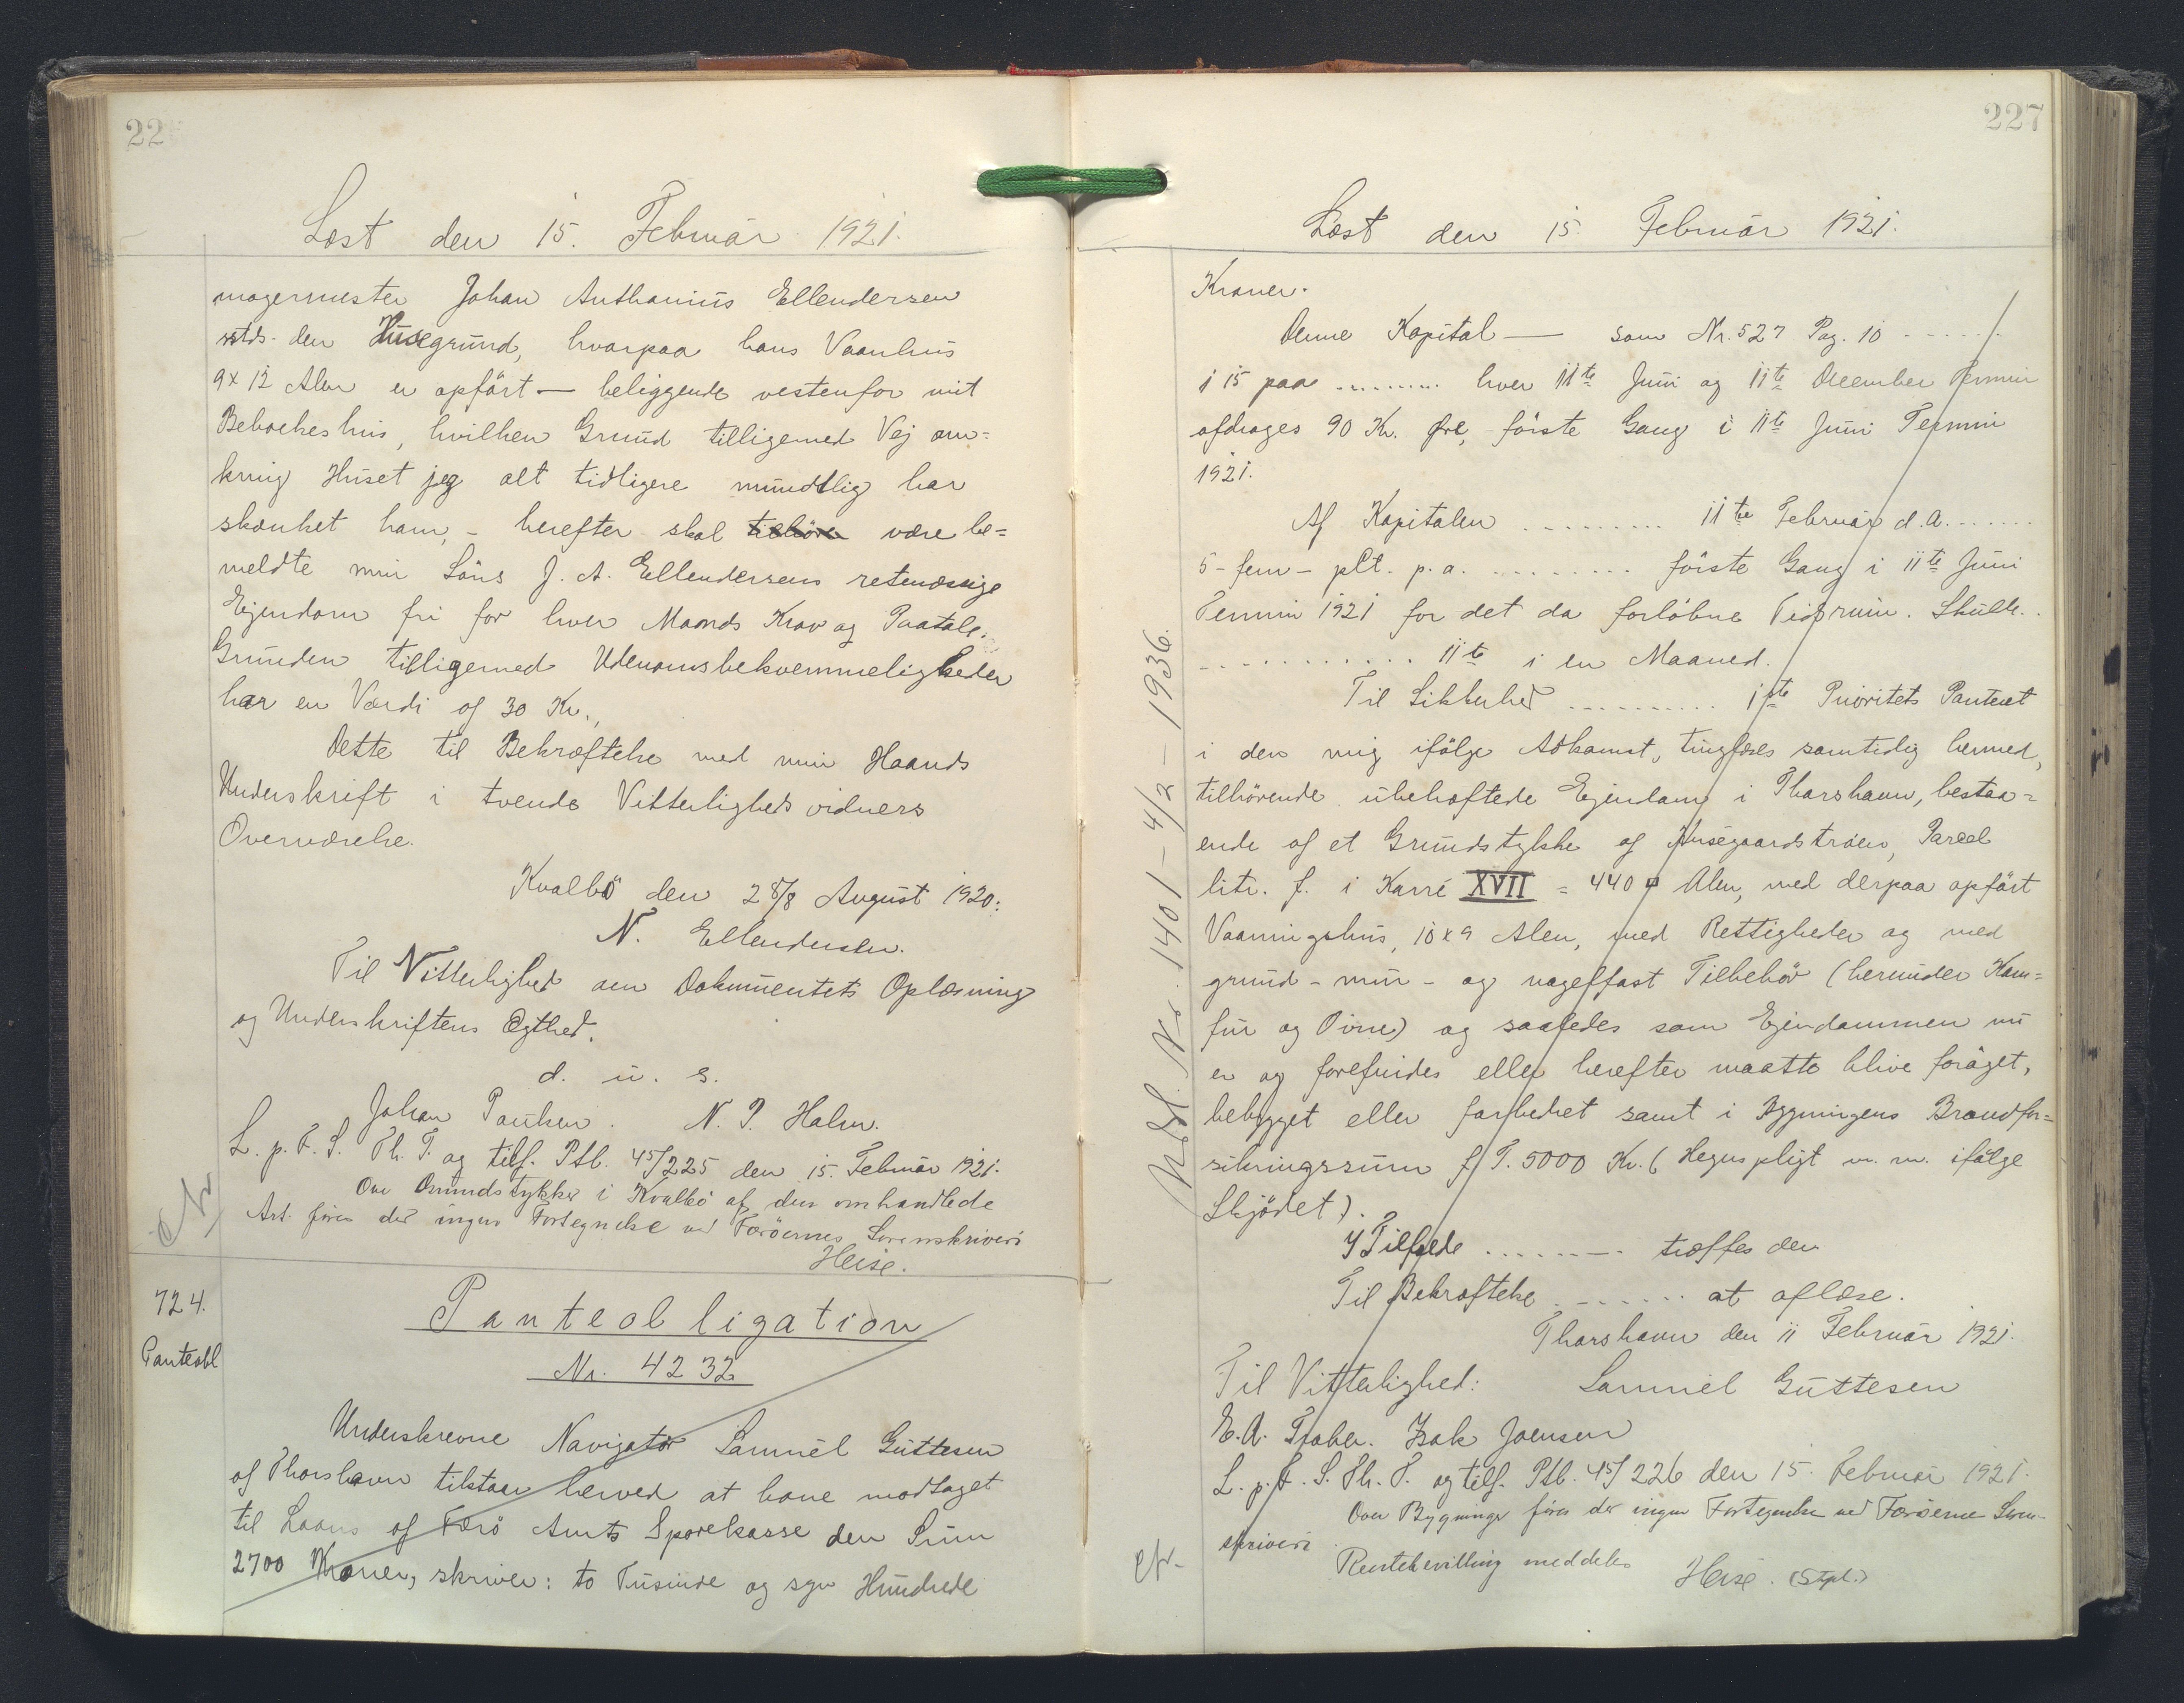 22
Læst den 15. Februar 1921.
magermester Johan Anthonius Ellendersen
sstds. den Husegrund, hvorpaa hans Vaanhus
9 x 12 Alen er opfört — beliggende vestenfor mit
Beboelseshus, hvilken Grund tilligemed Vej om=
kring Huset jeg alt tidligere mundtlig har
skænket ham, - herefter skal tilhöre være be=
meldte min Söns J. A. Ellendersens retmæssige
Ejendom fri for hver Mands Krav og Paatale.
Grunden tilligemed Udenomsbekvemmeligheder
har en Værdi af 30 Kr.,
Dette til Bekræftelse med min Haands
Underskrift i tvende Vitterlighedsvidners
Overværelse.
Kvalbö den 28/8 August 1920.
N. Ellendersen.
Til Vitterlighed om Dokumentets Oplæsning
og Underskriftens Ægthed.
d. u. s.
Johan Poulsen. N. P. Holm.
L. p. F. S. Th. T. og tilf. Ptb. 45/225 den 15. Februar 1921.
Ove Grundstykker i Kvalbö af den omhandlede
Art föres der ingen Fortegnelse ved Færöernes Sorenskriveri
Heise.
724.
Panteobl
Panteobligation
Nr. 4232
Underskrevne Navigatör Samuel Guttesen
af Thorshavn tilstaar herved at have modtaget
til Laans af Færö Amts Sparekasse den Sum
2700 Kroner, skriver: to Tusinde og syv Hundrede
227
Læst den 15. Februar 1921.
Kroner.
Denne Kapital — som Nr. 527 Pag. 10 ......
i 15 paa ......... hver 11te Juni og 11te December Termin
afdrages 90 Kr. Øre, förste Gang i 11te Juni Termin
1921.
Af Kapitalen ......... 11te Februar d. A. ......
5 - fem - pCt. p. a. ......... förste Gang i 11te Juni
Termin 1921 for det da forlöbne Tidsrum. Skulle..
............ 11te i en Maaned.
Til Sikkerhed .......... 1ste Prioritets Panteret
i den mig ifölge Adkomst, tinglæses samtidig hermed,
tilhörende ubehæftede Ejendom i Thorshavn, bestaa=
ende af et Grundstykke af Husegaardströen, Parcel
litr. f. i Karré XVII = 440 □ Alen, med derpaa opfört
Vaaningshus, 10 x 9 Alen, med Rettigheder og med
grund - mur - og nagelfast Tilbehör (herunder Kom=
fur og Ovne) og saaledes som Ejendommen nu
er og forefindes eller herefter maatte blive foröget,
bebygget eller forbedret samt i Bygningens Brandfor=
sikringssum f. T. 5000 Kr. (Hegnspligt m. m. ifölge
Skjödet).
I Tilfælde ......... træffes den
Til Bekræftelse ...... at aflæse.
Thorshavn den 11 Februar 1921.
Til Vitterlighed: Samuel Guttesen
Isak Joensen
L. p. F. S. Th. T. og tilf. Ptb. 45/226 den 15. Februar 1921.
Over Bygninger föres der ingen Fortegnelse ved Færöerne Soren-
skriveri
Rentebevilling meddeles Heise. (Stpl.)
Nr. 1401 - 4/2 - 1936.